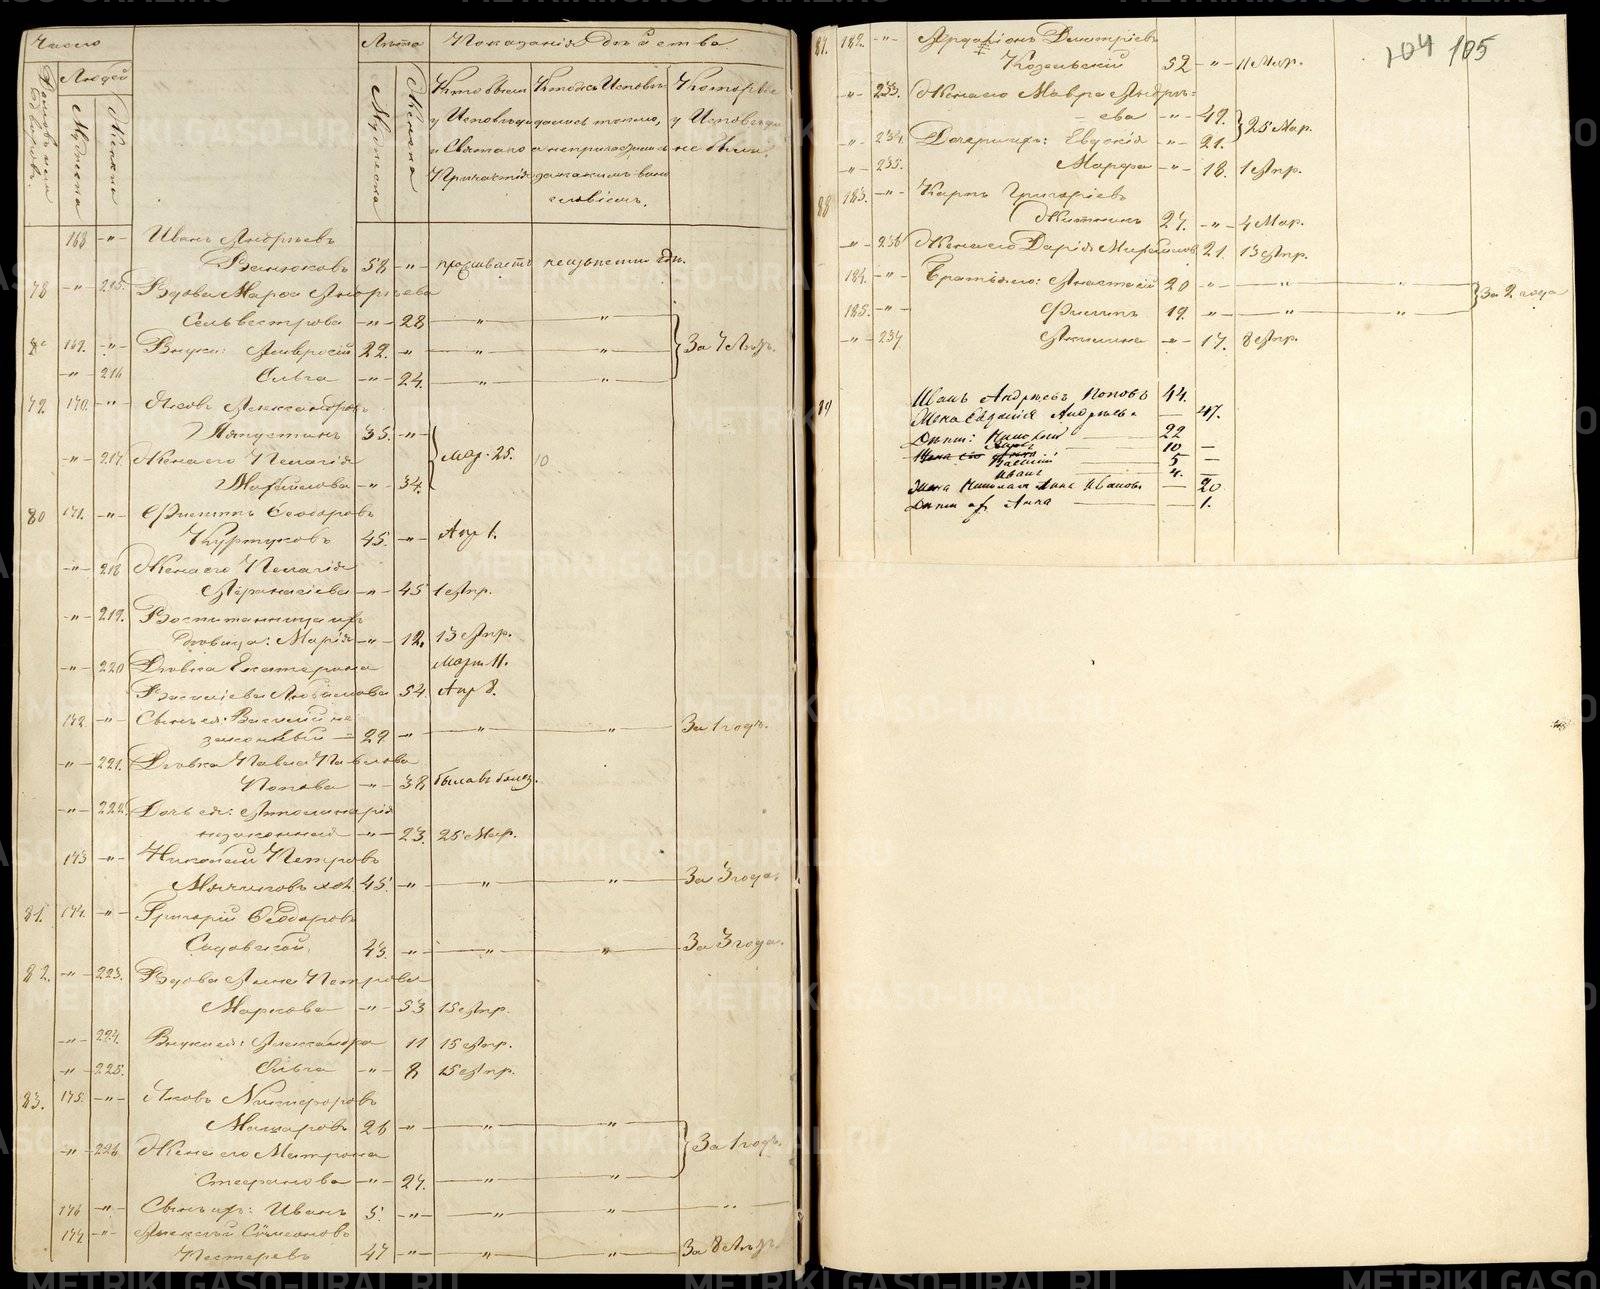 Число
Лѣта
Показанія Дѣйства
Людей
Мужеска
Женска
Мужеска
Женска
Кто были у Исповѣди и Святаго Причастія
Кто же Исповѣдались токмо, а не причастились и за какимъ винословіемъ.
Которые у Исповѣди не были.
168 -"- Иванъ Андрѣевъ
Ванюковъ 58 -"- проживаетъ неизвѣстно гдѣ.
78 -"- 215. Вдова Марѳа Андрѣева
Сельвестрова -"- 28 " "
169. -"- Внуки: Амвросій 22. -"- " " За 7 Лѣтъ.
-"- 216 Ольга -"- 24. " "
79. 170. -"- Яковъ Александровъ
35. -"-
-"- 217. Жена его Пелагія Мар. 25.
Михайлова -"- 34.
80 171. -"- Филиппъ Ѳеодоровъ
Куртуковъ 45. -"- Апр 1.
-"- 218 Жена его Пелагія
Аѳанасіева -"- 45 1 Апр.
-"- 219. Воспитанница ихъ
Дѣвица: Марія -"- 12. 13 Апр.
-"- 220 Дѣвка Екатерина Март 11.
Василіева Любимова 54. Апр 8.
172 -"- Сынъ ея: Василій не
законный 29 -"- " " За 1 годъ.
-"- 221. Дѣвка Павла Павлова
Попова -"- 38 была въ болез.
-"- 222. Дочь ея: Апполинарія
незаконная -"- 23. 25 Мар.
173 -"- Николай Петровъ
45. -"- " " За 3 года.
81. 174. -"- Григорій Ѳеодоровъ
Садовской 43. -"- " " За 3 года.
82. -"- 223. Вдова Анна Петрова
Маркова -"- 53 15 Апр.
-"- 224. Внуки ея: Александра 11 15 Апр.
-"- 225. Ольга -"- 8 15 Апр.
83. 175. -"- Яковъ Никифоровъ
Макаровъ 26 -"- " "
-"- 226. Жена его Матрона За 1 годъ.
Стефанова -"- 24. " "
176 -"- Сынъ ихъ: Иванъ 5. -"- " " "
177 -"- Алексѣй Симеоновъ
Пестеревъ 47 -"- " " За 8 Лѣтъ.
104 105
182. -"- Ардаліонъ Дмитріевъ
Козельскій 52 -"- 11 Мар.
-"- 233. Жена его Мавра Андрѣ=
ева -"- 49. 25 Мар.
-"- 234. Дочери ихъ: Евдокія -"- 21.
-"- 235. Марѳа -"- 18. 1 Апр.
88 183. -"- Карпъ Григоріевъ
27. -"- 4 Мар.
-"- 236 Жена его Дарія Михайлова 21. 13 Апр.
184. -"- Братья его: Анастасій 20 -"- " " За 2 года
185. -"- Филиппъ 19. -"- " "
-"- 237 Акилина -"- 17. 8 Апр.
Иванъ Андрѣевъ Поповъ 44.
Жена Евдокія Андрѣева — 47.
Дѣти: Николай 22
10 —
Василій 5 —
Иванъ 4. —
Жена Николая Анна Иванова — 20
Дѣти их Анна — 1.